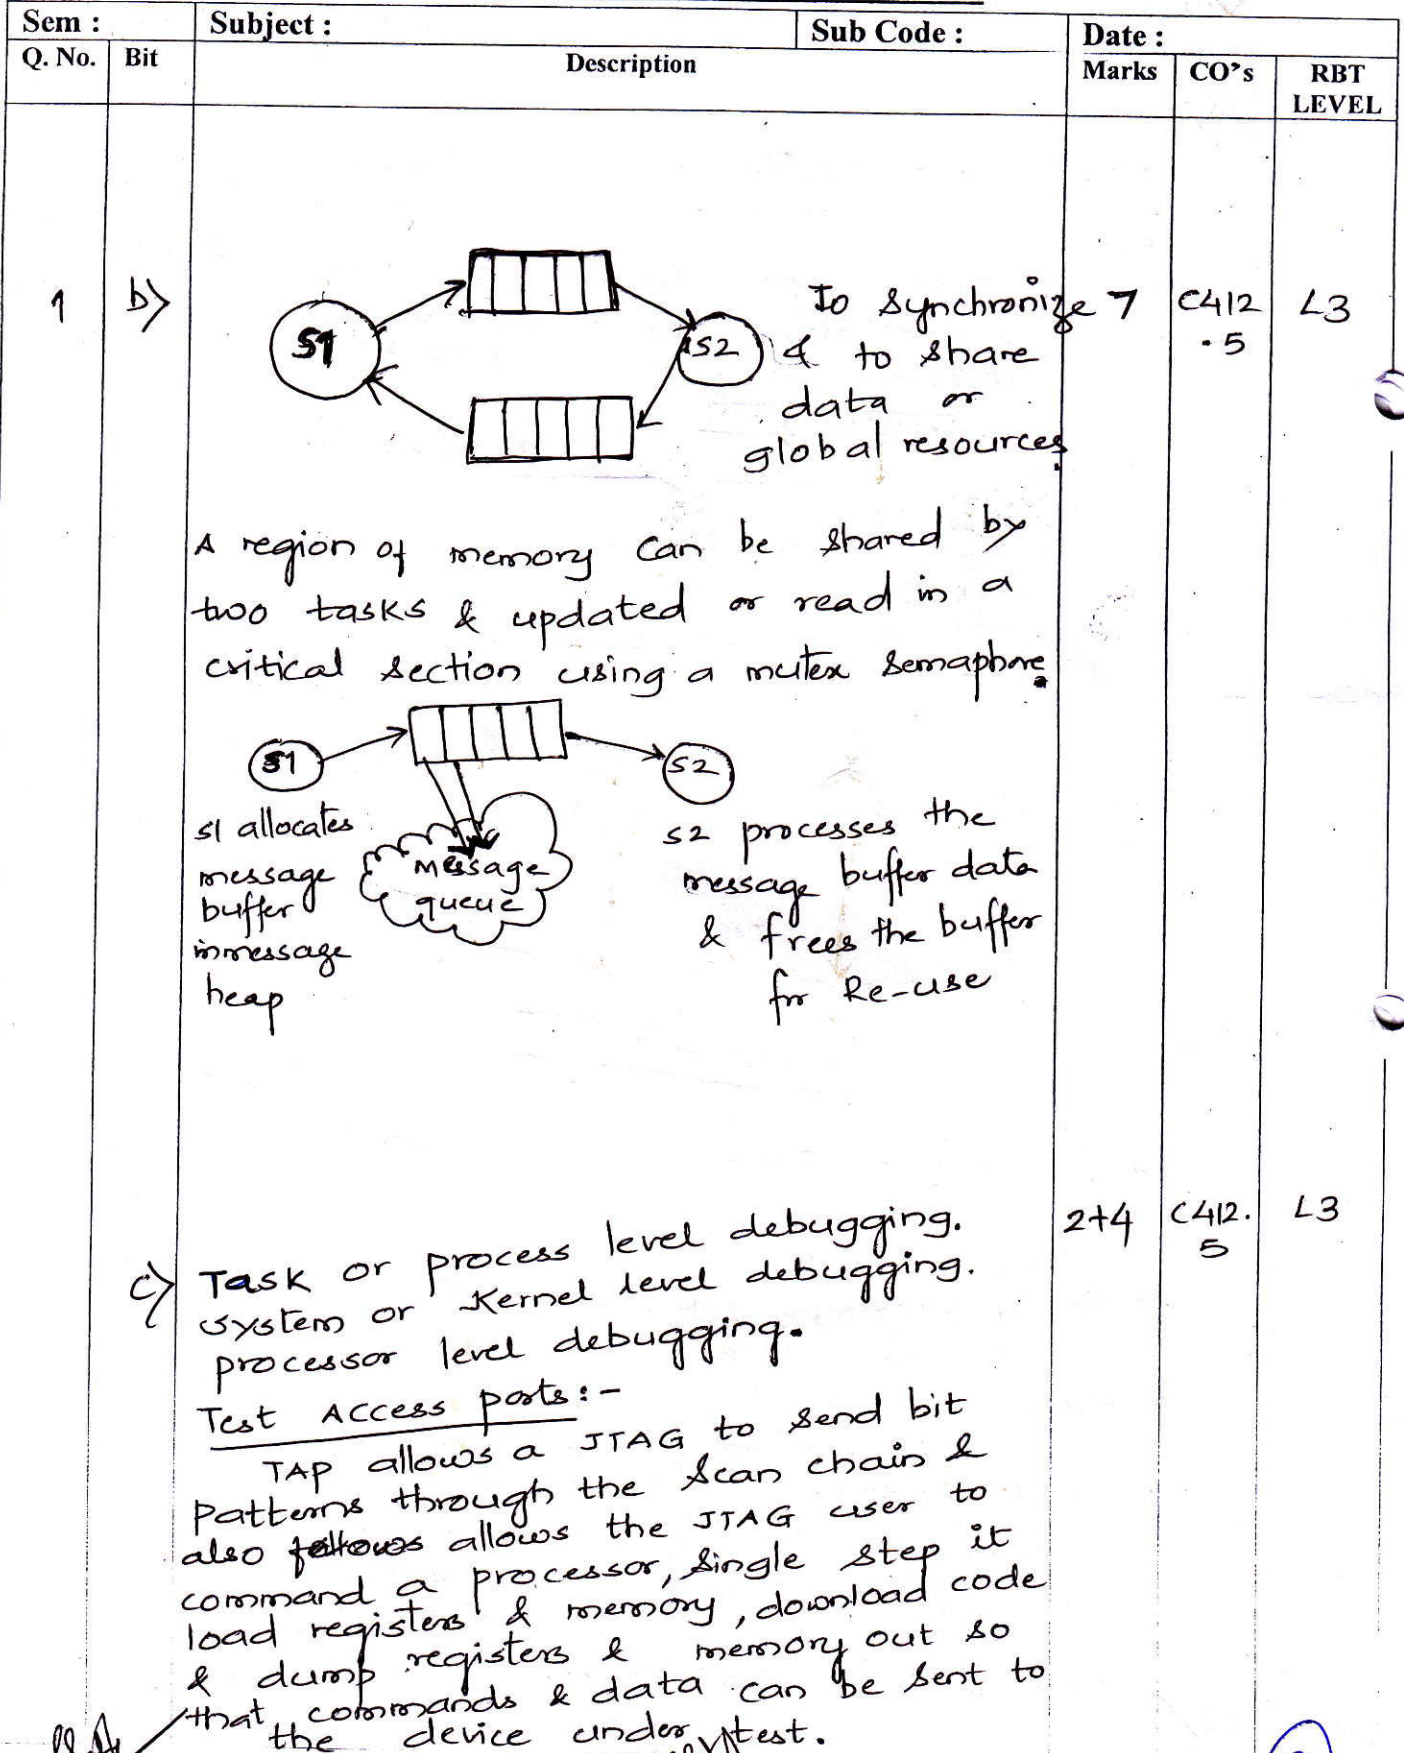 Sem : Subject : Sub Code : Date :
Q. No. Bit Description Marks CO's RBT LEVEL
1 b) To synchronize 7 C412.5 L3
S1 S2 & to share
data or
global resources.
A region of memory can be shared by
two tasks & updated or read in a
critical section using a mutex semaphore.
S1 S2
S1 allocates
message
buffer
in message
heap
message
queue
S2 processes the
message buffer data
& frees the buffer
for Re-use
c) Task or process level debugging. 2+4 C412.5 L3
system or Kernel level debugging.
processor level debugging.
Test Access ports:-
TAP allows a JTAG to send bit
patterns through the scan chain &
also allows the JTAG user to
command a processor, single step it
load registers & memory, download code
& dump registers & memory out so
that commands & data can be sent to
the device under test.